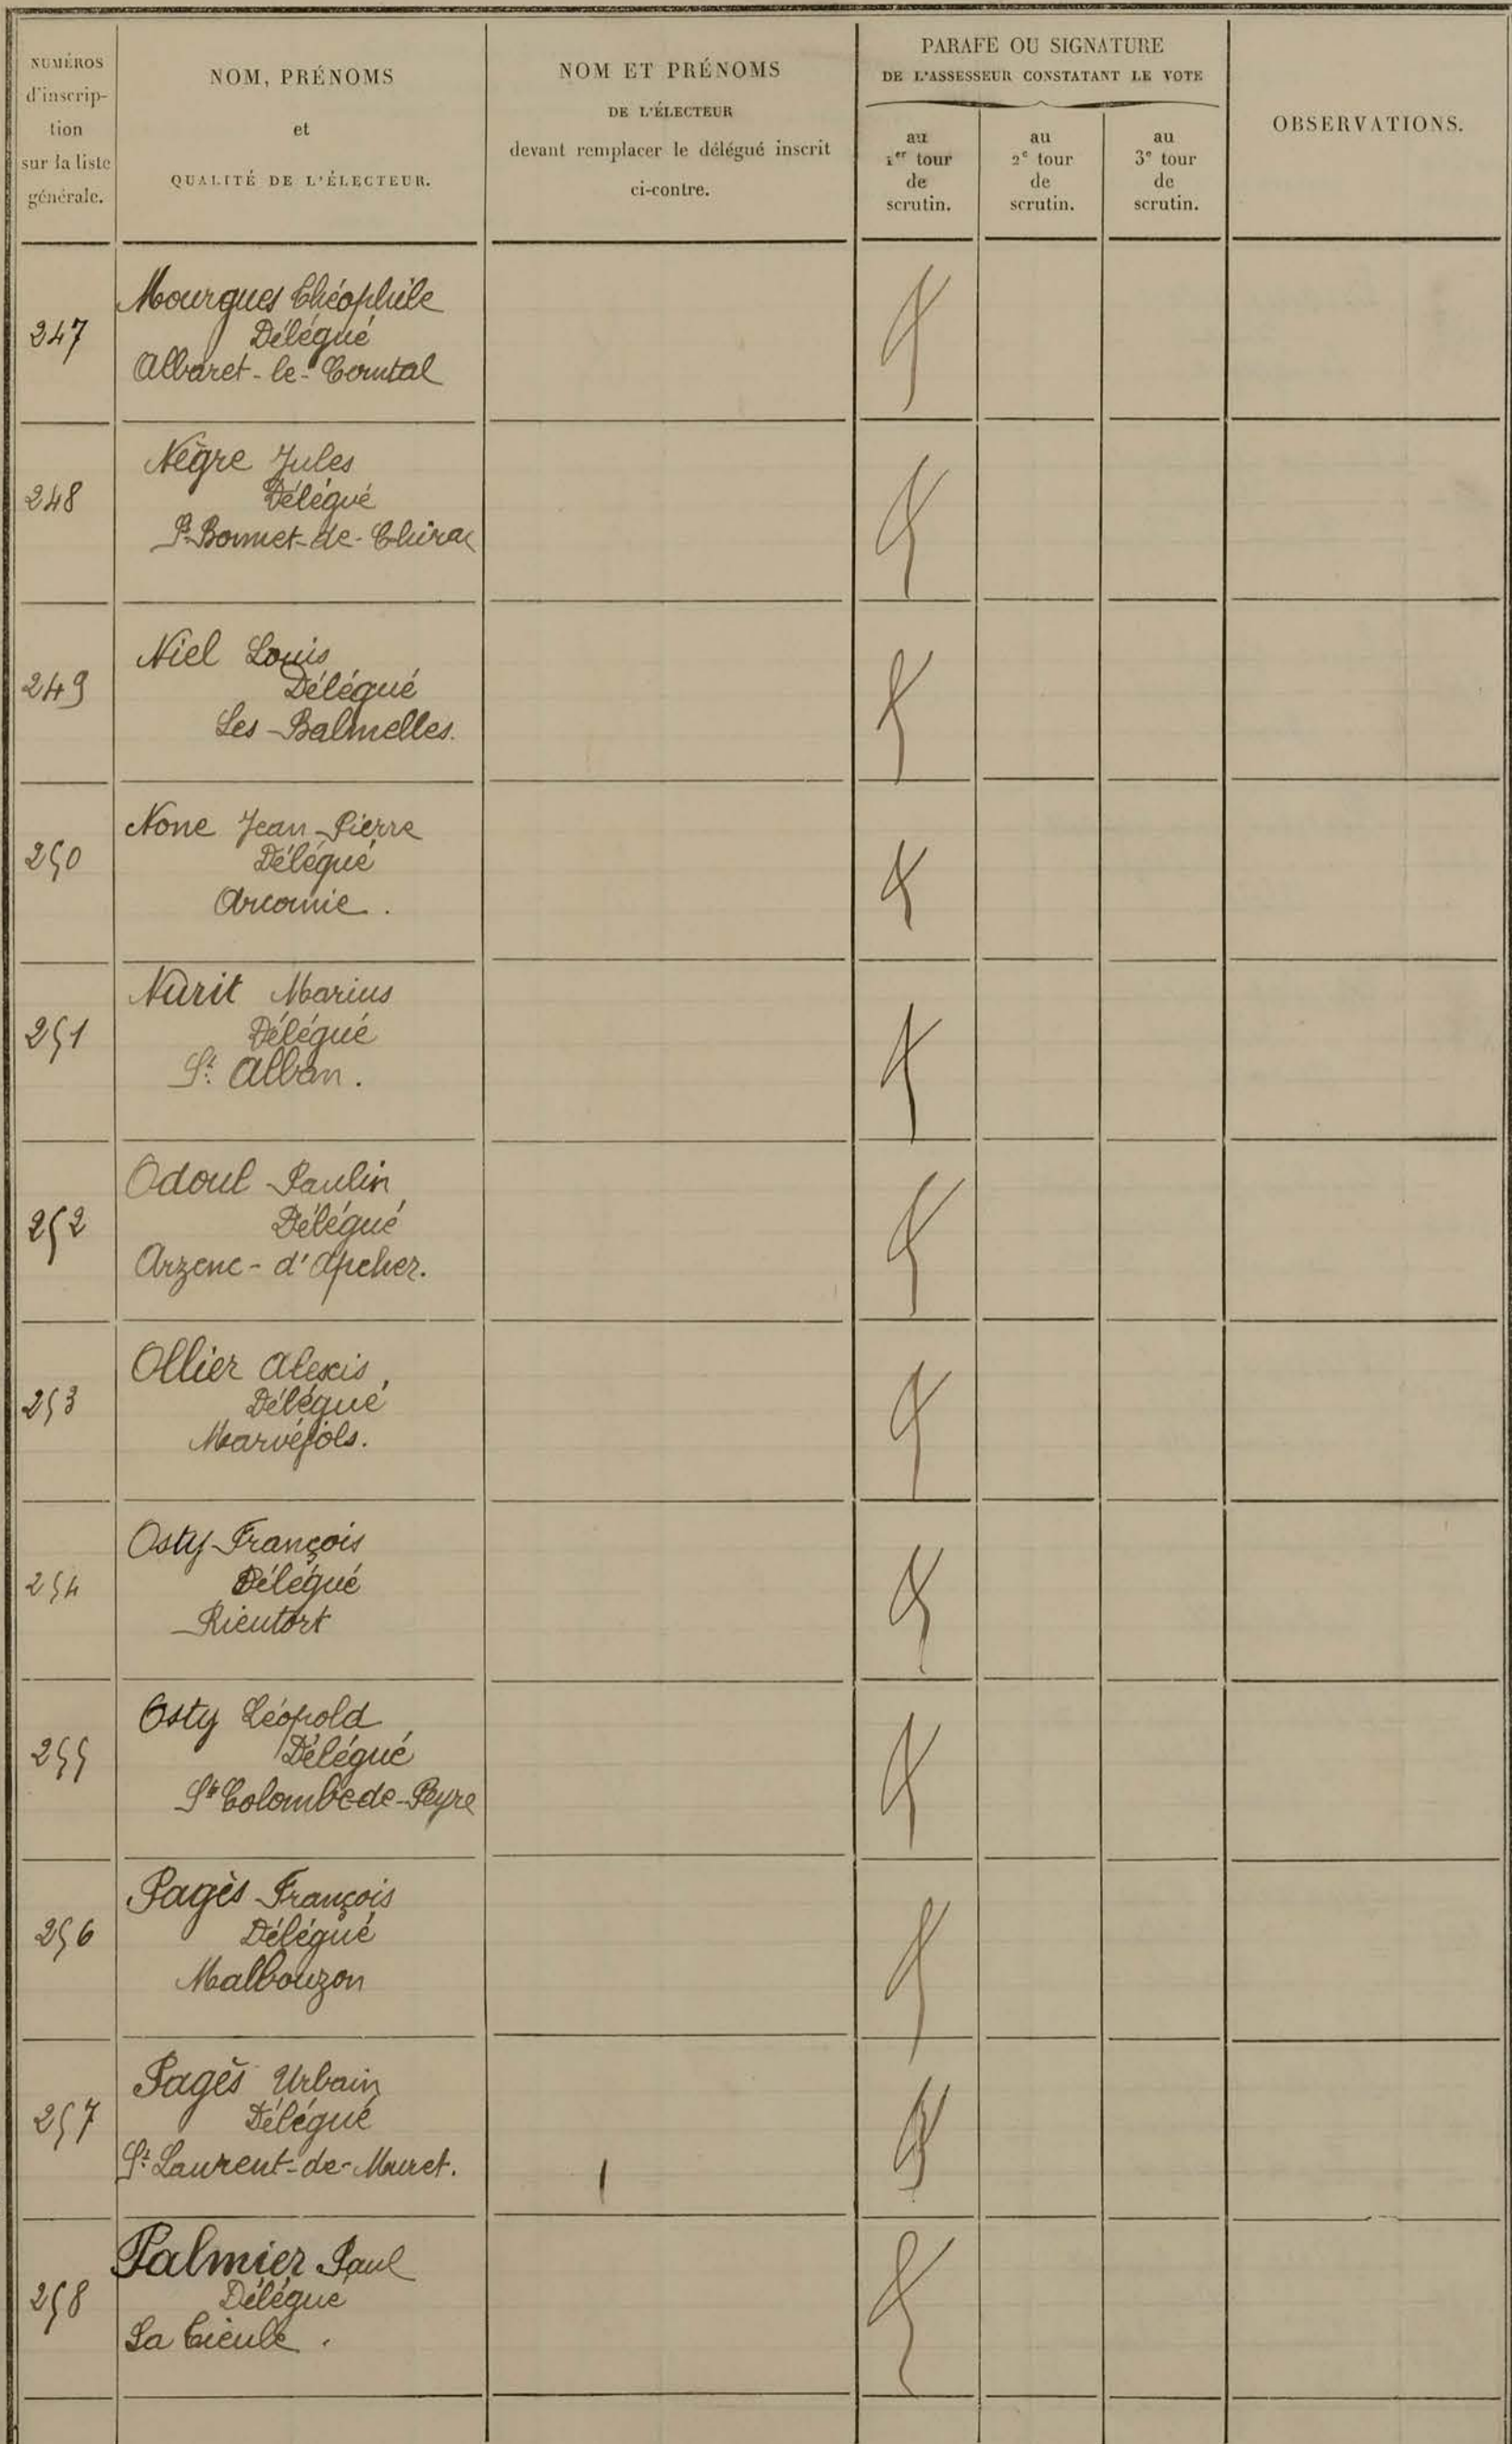 NUMÉROS
d'inscrip-
tion
sur la liste
générale.
NOM, PRÉNOMS
et
QUALITÉ DE L'ÉLECTEUR.
NOM ET PRÉNOMS
DE L'ÉLECTEUR
devant remplacer le délégué inscrit
ci-contre.
PARAFE OU SIGNATURE
DE L'ASSESSEUR CONSTATANT LE VOTE
au
1er tour
de
scrutin.
au
2e tour
de
scrutin.
au
3e tour
de
scrutin.
OBSERVATIONS.
247
Mourgues Théophile
Délégué
Albaret-le-Comtal
248
Nègre Jules
Délégué
St Bonnet-de-Chirac
249
Niel Louis
Délégué
Les Balmelles.
250
None Jean-Pierre
Délégué
Arcomie.
251
Nurit Marius
Délégué
St. Alban.
252
Odoul Paulin
Délégué
Arzenc-d'Apcher.
253
Ollier Alexis
Délégué
Marvéjols.
254
Osty François
Délégué
Rieutort
255
Osty Léopold
Délégué
Ste Colombe-de-Peyre
256
Pagès François
Délégué
Malbouzon
257
Pagès Urbain
Délégué
St. Laurent-de-Muret.
258
Palmier Paul
Délégué
La Tieule.